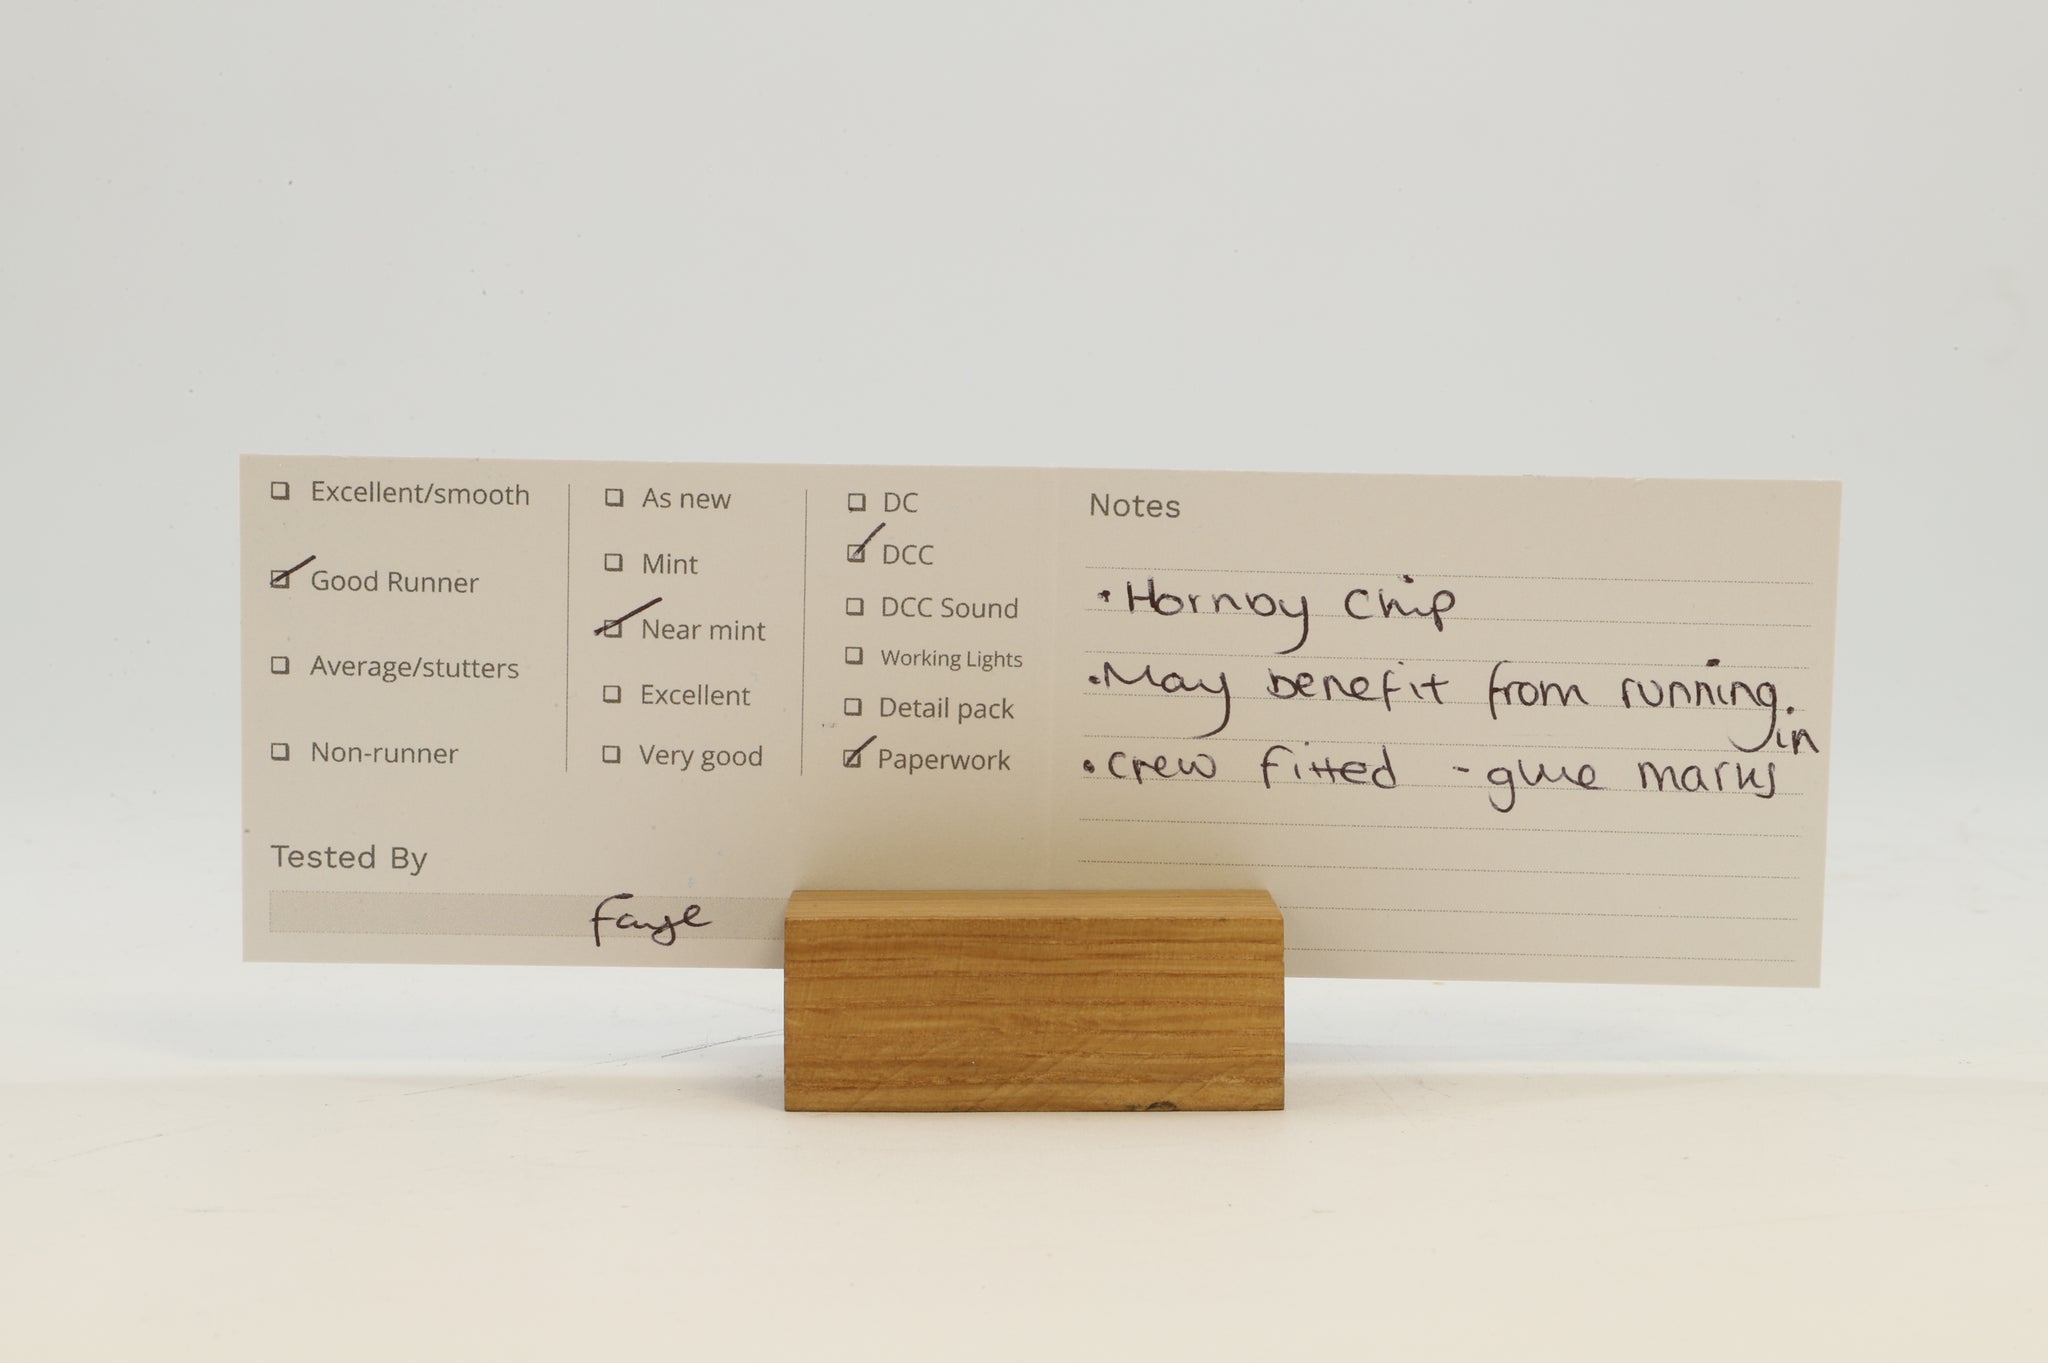 Excellent/smooth
Good Runner
Average/stutters
Non-runner
As new
Mint
Near mint
Excellent
Very good
DC
DCC
DCC Sound
Working Lights
Detail pack
Paperwork
Tested By
Faye
Notes
• Hornby Chip
• May benefit from running.
in
• Crew fitted - glue marks